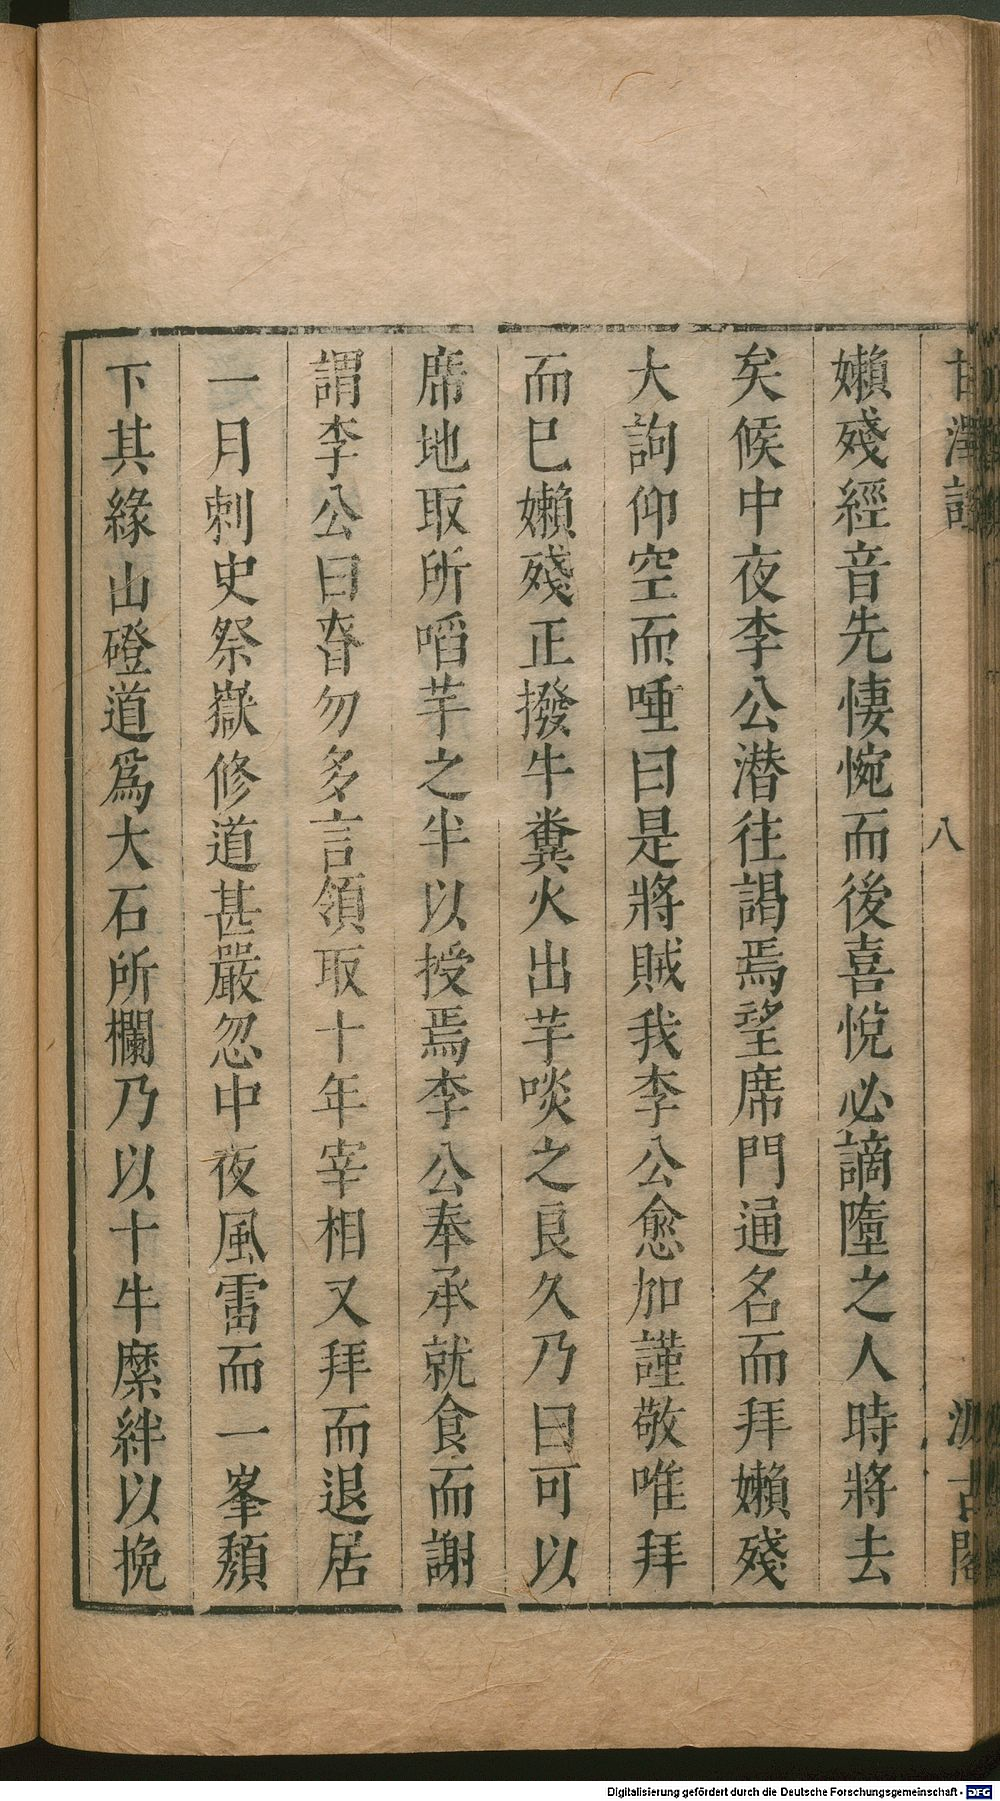 甘澤謠
八
汲古閣
嬾殘經音先悽惋而後喜悅必謫墮之人時將去
矣候中夜李公潛往謁焉望席門通名而拜嬾殘
大詢仰空而唾曰是將賊我李公愈加謹敬唯拜
而已嬾殘正撥牛糞火出芋啖之良久乃曰可以
席地取所啗芋之半以授焉李公奉承就食而謝
謂李公曰昚勿多言領取十年宰相又拜而退居
一月刺史祭嶽修道甚嚴忽中夜風雷而一峯頹
下其緣山磴道爲大石所欄乃以十牛縻絆以挽
Digitalisierung gefördert durch die Deutsche Forschungsgemeinschaft - DFG